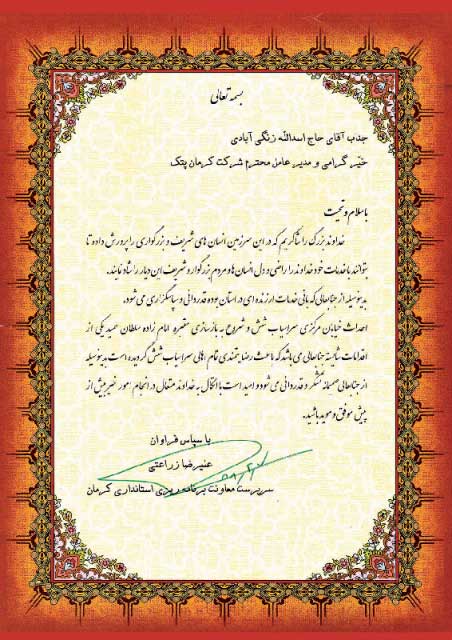 بسمه تعالی
جناب آقای حاج اسدالله زنگی آبادی
خیّر گرامی و مدیر عامل محترم شرکت کرمان پتک
با سلام و تحیت
خداوند بزرگ را شاکریم که در این سرزمین انسان های شریف و بزرگواری را پرورش داده تا
توانند با خدمات خود خداوند را راضی و دل انسان ها و مردم بزرگوار و شریف این دیار را شاد نمایند.
بدینوسیله از جنابعالی که بانی خدمات ارزنده ای در استان بوده قدردانی و سپاسگزاری می شود.
احداث خیابان مرکزی سرآسیاب شش و شروع به بازسازی مقبره امام زاده سلطان حمید یکی از
اقدامات شایسته جنابعالی می باشد که باعث رضایتمندی تمام اهالی سرآسیاب شش گردیده است بدینوسیله
از جنابعالی صمیمانه تشکر و قدردانی می شود و امید است با اتکال به خداوند متعال در انجام امور خیر بیش از
پیش موفق و موید باشید.
با سپاس فراوان
علیرضا زراعتی
سرپرست معاونت برنامه ریزی استانداری کرمان